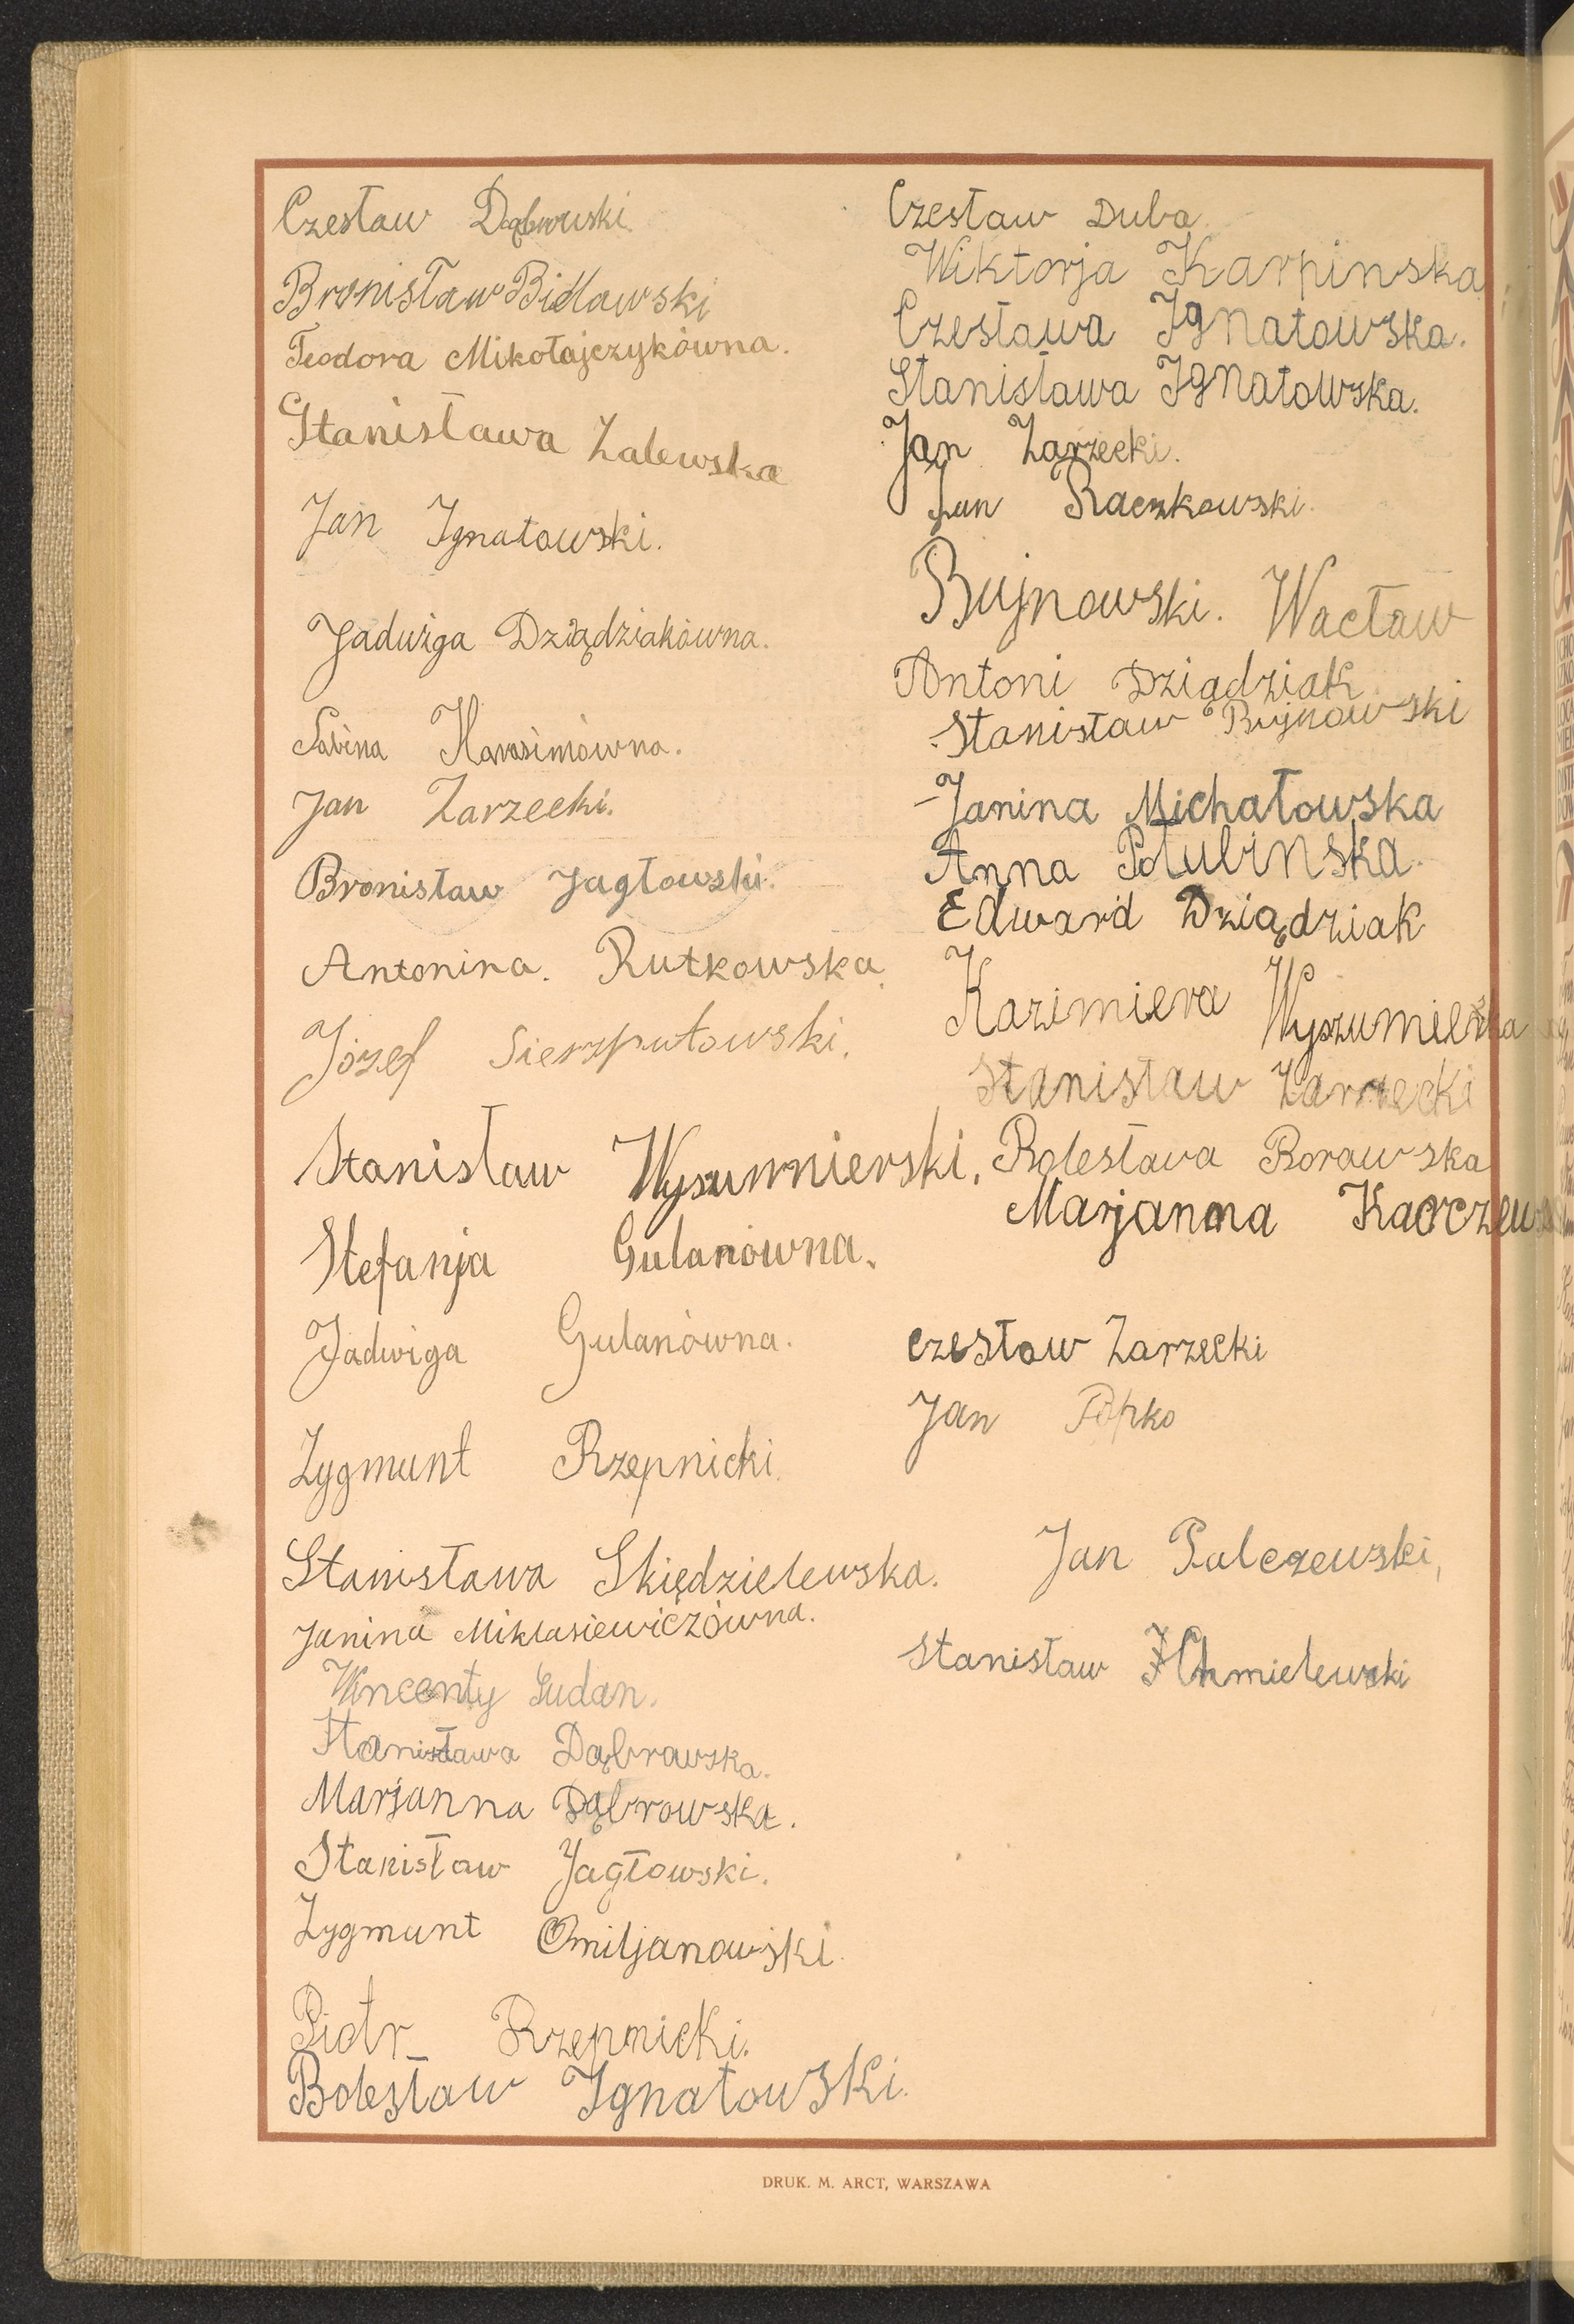 Czesław Dąbrowski
Bronisław Bidławski
Teodora Mikołajczykówna.
Stanisława Zalewska
Jan Ignatowski.
Jadwiga Dziądziakówna.
Sabina Harasimówna.
Jan Zarzecki.
Bronisław Jagłowski.
Antonina. Rutkowska
Józef Sierzputowski.
Stanisław Wyszumierski.
Stefanja Gulanówna.
Jadwiga Gulanówna.
Zygmunt Rzepnicki.
Stanisława Skiędzielewska.
Janina Miklasiewiczówna.
Wincenty Gudan.
Stanisława Dąbrawska.
Marjanna Dąbrowska.
Stanisław Jagłowski.
Zygmunt Omiljanowski
Piotr Rzepnicki.
Bolesław Ignatowski.
Czesław Duba
Wiktorja Karpinska
Czesława Ignatowska.
Stanisława Ignatowska.
Jan Zarzecki.
Jan Raczkowski.
Bujnowski. Wacław
Antoni Dziądziak
Stanisław Bujnowski
Janina Michałowska
Anna Połubinska.
Edward Dziądziak
Kazimiera
Stanisław Zarzecki
Bolesława Borawska
Marjanna
Czesław Zarzecki
Jan Popko
Jan Palczewski,
Stanisław Chmielewski
DRUK. M. ARCT, WARSZAWA